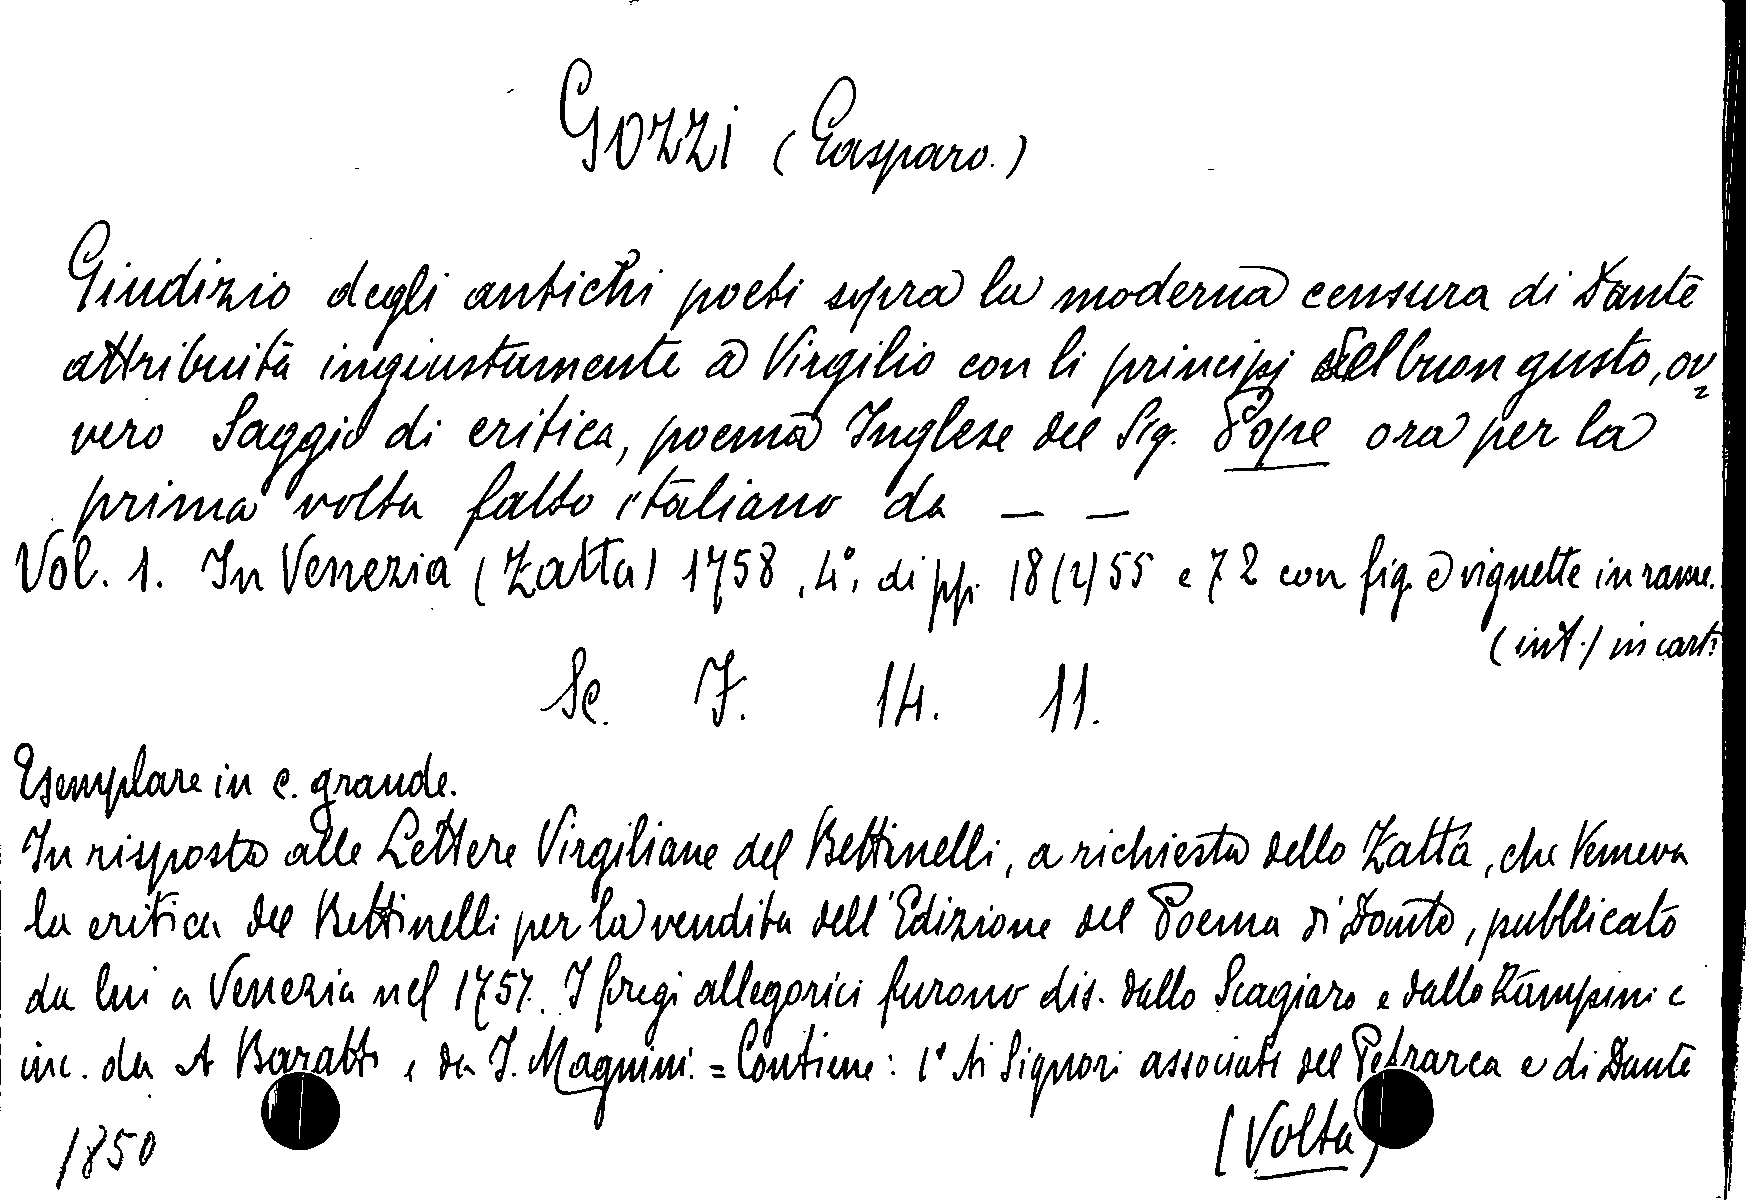 Gozzi (Gasparo.)
Giudizio degli antichi poeti sopra la moderna censura di Dante
attribuita ingiustamente a Virgilio con li principi del buon gusto, ov=
vero Saggio di critica, poema Inglese del Sig. Pope ora per la
prima volta fatto italiano da — —
Vol. 1. In Venezia (Zatta) 1758, 4°, di pp. 18(2)55 e 72 con fig. e vignette in rame.
(int.) in cart:
Sc. I. 14. 11.
Esemplare in c. grande.
In risposta alle Lettere Virgiliane del Bettinelli, a richiesta dello Zatta, che temeva
la critica del Bettinelli per la vendita dell'Edizione del Poema di Dante, pubblicato
da lui a Venezia nel 1757. I fregi allegorici furono dis. dallo Scagiaro e dallo Zampini e
inc. da A Baratti e da I. Magnini. = Contiene: 1° Ai Signori associati del Petrarca e di Dante
(Volta)
1850